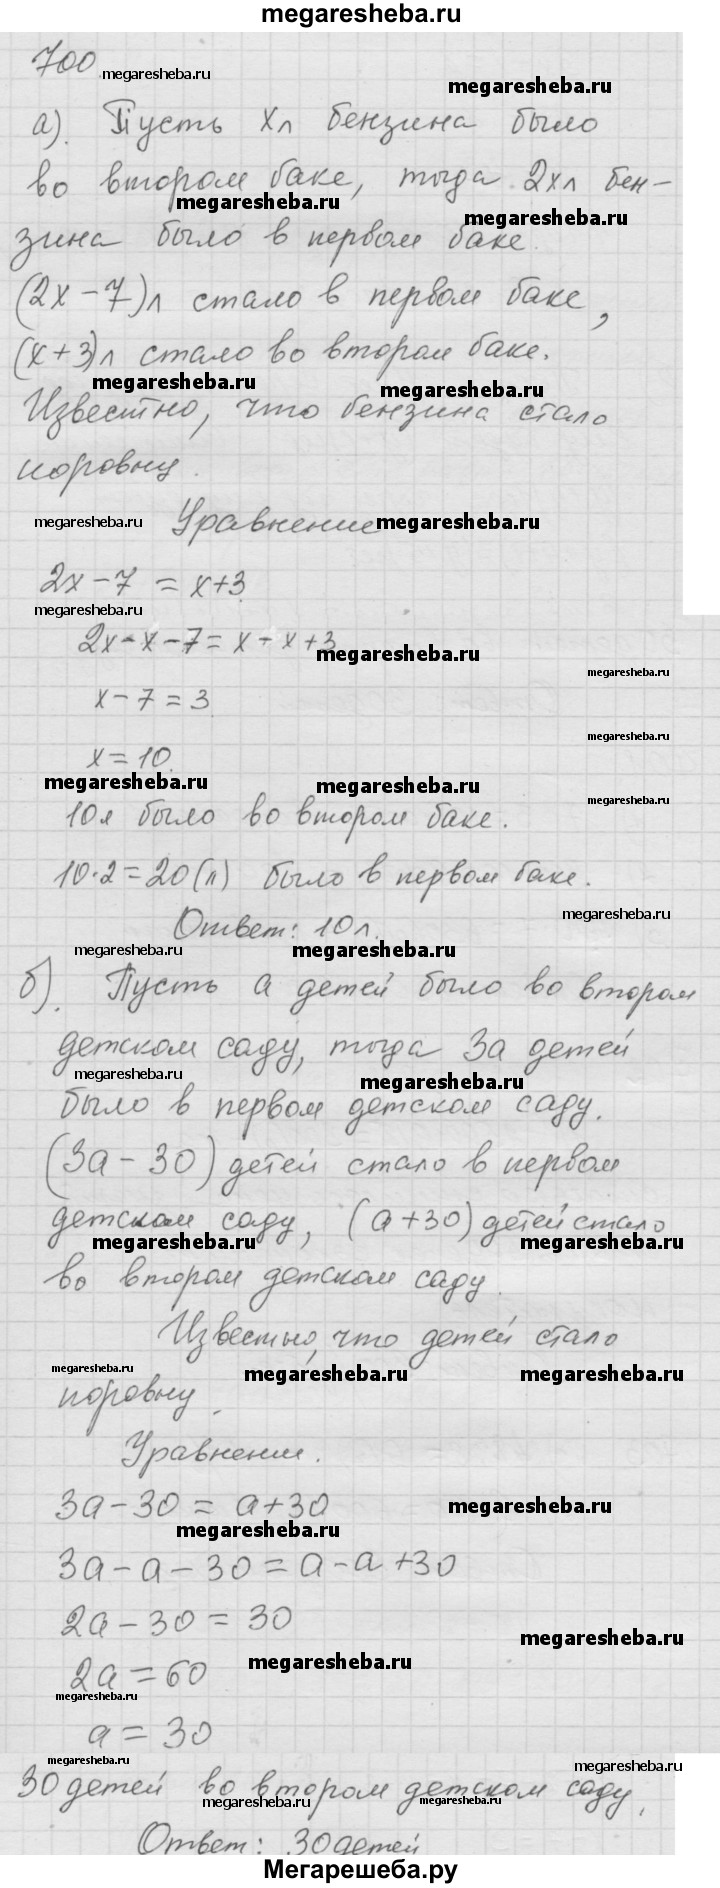 megaresheba.ru
700.
megaresheba.ru
megaresheba.ru
а). Пусть x л бензина было
во втором баке, тогда 2x л бен-
megaresheba.ru
megaresheba.ru
зина было в первом баке.
(2x-7) л стало в первом баке,
(x+3) л стало во втором баке.
megaresheba.ru
megaresheba.ru
Известно, что бензина стало
поровну.
megaresheba.ru
Уравнение
megaresheba.ru
2x-7 = x+3.
megaresheba.ru
2x-x-7 = x-x+3
megaresheba.ru
megaresheba.ru
x-7 = 3
megaresheba.ru
x = 10.
megaresheba.ru
megaresheba.ru
megaresheba.ru
10 л было во втором баке.
10·2=20(л) было в первом баке.
Ответ: 10 л.
megaresheba.ru
megaresheba.ru
megaresheba.ru
б). Пусть a детей было во втором
детском саду, тогда 3a детей
megaresheba.ru
megaresheba.ru
было в первом детском саду.
(3a-30) детей стало в первом
детском саду, (a+30) детей стало
megaresheba.ru
megaresheba.ru
во втором детском саду.
Известно, что детей стало
megaresheba.ru
megaresheba.ru
megaresheba.ru
поровну.
Уравнении.
3a-30 = a+30
megaresheba.ru
megaresheba.ru
3a-a-30 = a-a+30
2a-30 = 30
megaresheba.ru
2a = 60
megaresheba.ru
megaresheba.ru
a = 30
megaresheba.ru
megaresheba.ru
30 детей во втором детском саду,
megaresheba.ru
megaresheba.ru
Ответ: 30 детей
Мегарешеба.ру